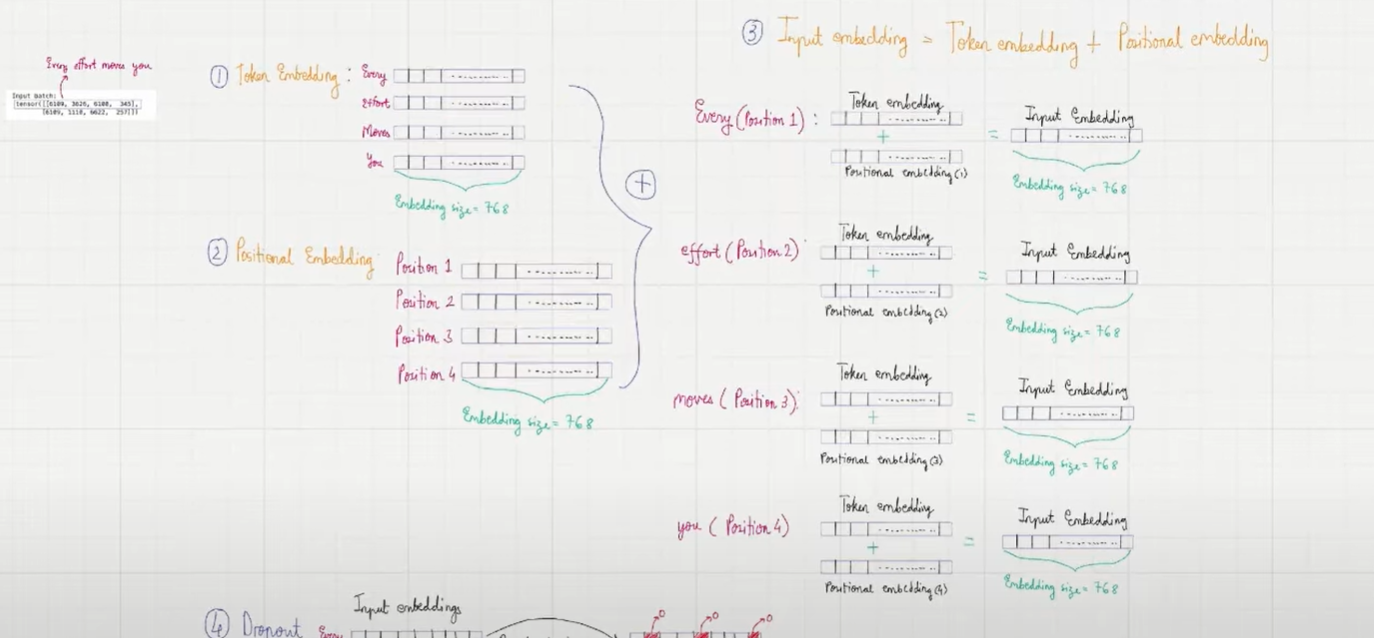 Every effort moves you
Input batch:
tensor([[6109, 3626, 6100, 345],
[6109, 1110, 6622, 257]])
① Token Embedding : Every
effort
Moves
You
Embedding size = 768
② Positional Embedding
Position 1
Position 2
Position 3
Position 4
Embedding size = 768
+
③ Input embedding = Token embedding + Positional embedding
Every (Position 1) :
Token embedding
+
Positional embedding (1)
=
Input Embedding
Embedding size = 768
effort (Position 2)
Token embedding
+
Positional embedding (2)
=
Input Embedding
Embedding size = 768
moves (Position 3)
Token embedding
+
Positional embedding (3)
=
Input Embedding
Embedding size = 768
you (Position 4)
Token embedding
+
Positional embedding (4)
=
Input Embedding
Embedding size = 768
④ Dropout
Input embeddings
Every
0 0 0